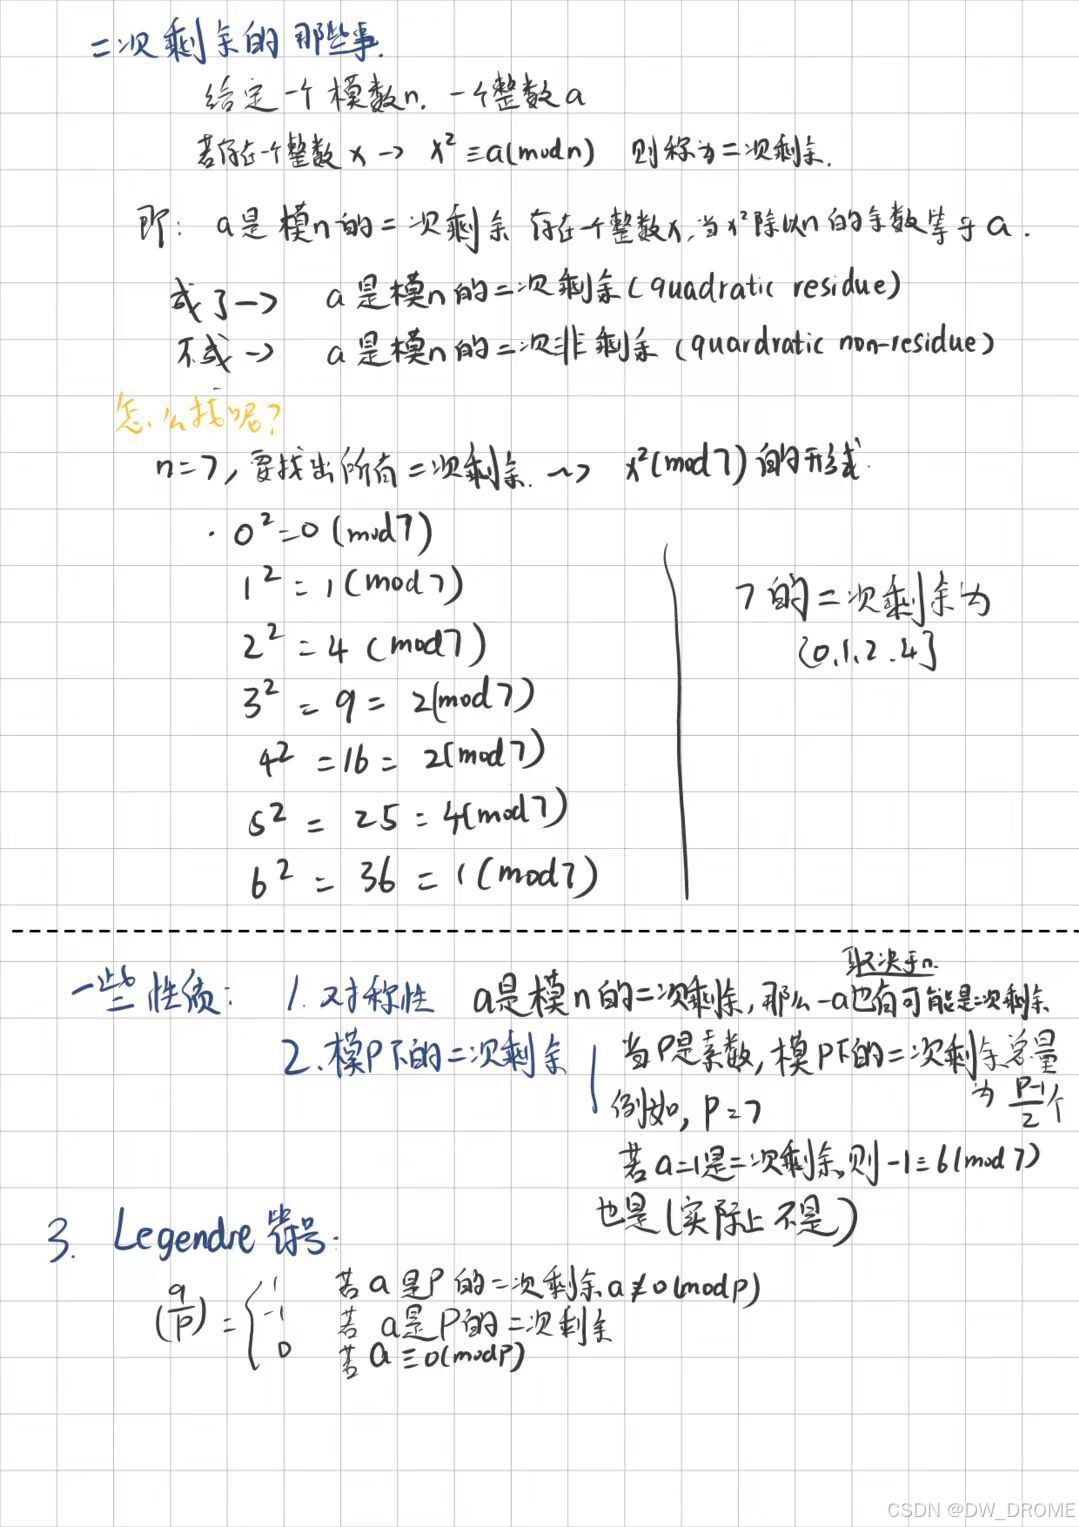 二次剩余的那些事.
给定一个模数n, 一个整数a
若存在一个整数x → x² ≡ a(mod n) 则称为二次剩余.
即: a是模n的二次剩余 存在一个整数x, 当x²除以n的余数等于a.
或了→ a是模n的二次剩余(quadratic residue)
不或→ a是模n的二次非剩余(quardratic non-residue)
怎么找呢?
n=7, 要找出所有二次剩余. ~> x²(mod7)的形式.
· 0²=0 (mod7)
1²=1(mod7)
2²=4 (mod7)
3²=9=2(mod7)
4²=16=2(mod7)
5²=25=4(mod7)
6²=36=1(mod7)
7的二次剩余为
{0.1.2.4}
取决于n.
一些性质: 1.对称性 a是模n的二次剩余,那么-a也有可能是二次剩余
2.模P下的二次剩余 当P是素数,模P下的二次剩余总量
为 P-1/2 个
例如, P=7
若a=1是二次剩余,则-1≡6(mod7)
也是(实际上不是)
3. Legendre符号.
(a/P) = { 1 若a是P的二次剩余a≢0(modP)
-1 若a是P的二次剩余
0 若a≡0(modP)
CSDN @DW_DROME